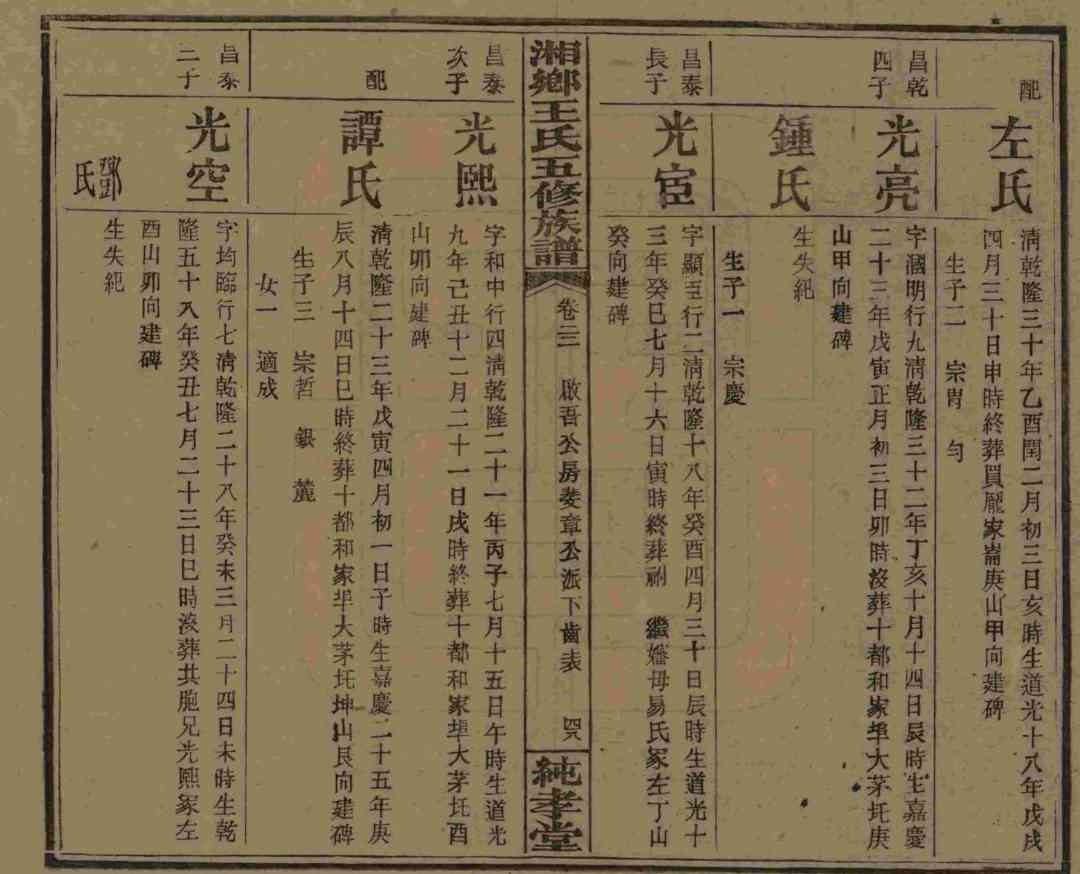 配
左氏
清乾隆三十年乙酉閏二月初三日亥時生道光十八年戊戌
四月三十日申時終葬買龐家崙庚山甲向建碑
生子二　宗胄　勻
昌乾
四子
光亮
字國明行九清乾隆三十二年丁亥十月十四日辰時生嘉慶
二十三年戊寅正月初三日卯時沒葬十都和家埠大茅坵庚
山甲向建碑
鍾氏
生失紀
生子一　宗慶
昌泰
長子
光宦
字顯臣行二清乾隆十八年癸酉四月三十日辰時生道光十
三年癸巳七月十六日寅時終葬祔　繼嬸母易氏冢左丁山
癸向建碑
湘鄉王氏五修族譜
卷二二　啟吾公房斐章公派下齒表
純孝堂
昌泰
次子
光熙
字和中行四清乾隆二十一年丙子七月十五日午時生道光
九年己丑十二月二十一日戌時終葬十都和家埠大茅坵酉
山卯向建碑
配
譚氏
清乾隆二十三年戊寅四月初一日子時生嘉慶二十五年庚
辰八月十四日巳時終葬十都和家埠大茅坵坤山艮向建碑
生子三　宗哲　銀　麓
女一　適成
昌泰
三子
光空
字均臨行七清乾隆二十八年癸未三月二十四日未時生乾
隆五十八年癸丑七月二十三日巳時沒葬其胞兄光熙冢左
酉山卯向建碑
鄧氏
生失紀